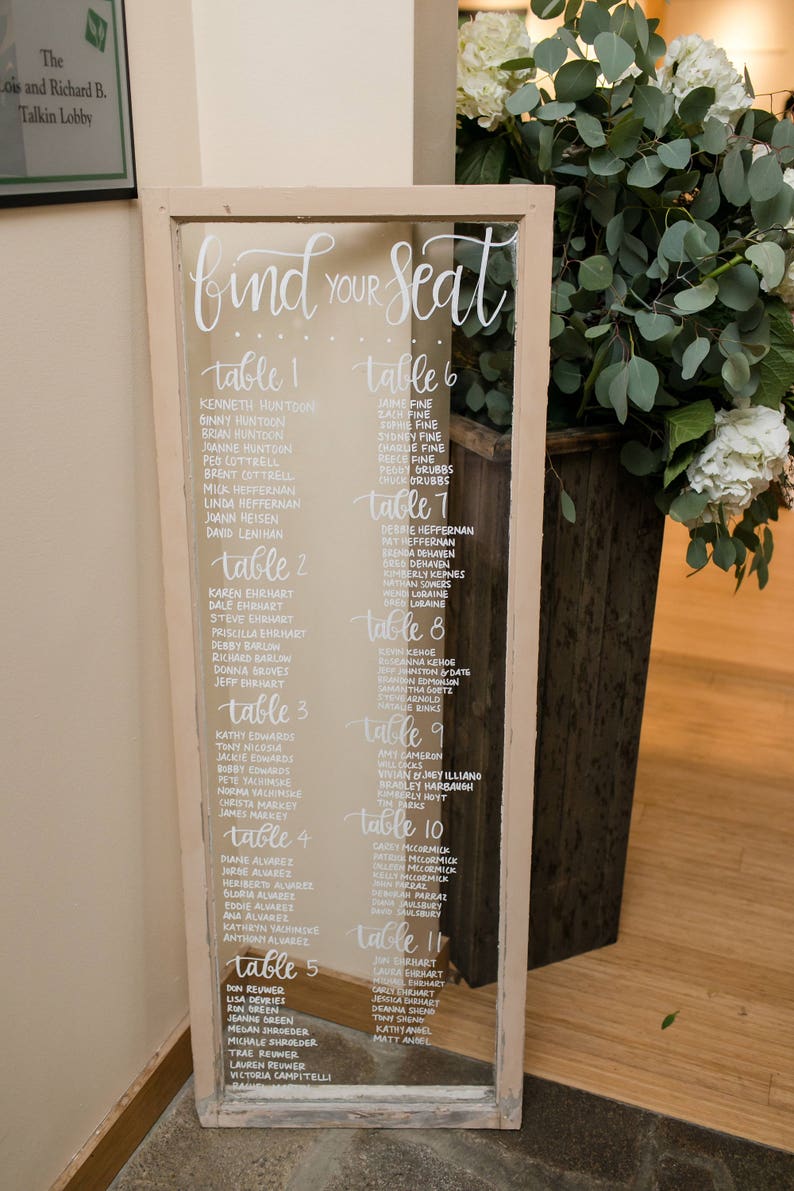 The
Lois and Richard B.
Talkin Lobby
find YOUR Seat
table 1
KENNETH HUNTOON
GINNY HUNTOON
BRIAN HUNTOON
JOANNE HUNTOON
PEG COTTRELL
BRENT COTTRELL
MICK HEFFERNAN
LINDA HEFFERNAN
JOANN HEISEN
DAVID LENIHAN
table 2
KAREN EHRHART
DALE EHRHART
STEVE EHRHART
PRISCILLA EHRHART
DEBBY BARLOW
RICHARD BARLOW
DONNA GROVES
JEFF EHRHART
table 3
KATHY EDWARDS
TONY NICOSIA
JACKIE EDWARDS
BOBBY EDWARDS
PETE YACHIMSKE
NORMA YACHIMSKE
CHRISTA MARKEY
JAMES MARKEY
table 4
DIANE ALVAREZ
JORGE ALVAREZ
HERIBERTO ALVAREZ
GLORIA ALVAREZ
EDDIE ALVAREZ
ANA ALVAREZ
KATHRYN YACHIMSKE
ANTHONY ALVAREZ
table 5
DON REUWER
LISA DEVRIES
RON GREEN
JEANNE GREEN
MEGAN SHROEDER
MICHALE SHROEDER
TRAE REUWER
LAUREN REUWER
VICTORIA CAMPITELLI
table 6
JAIME FINE
ZACH FINE
SOPHIE FINE
SYDNEY FINE
CHARLIE FINE
REECE FINE
PEGGY GRUBBS
CHUCK GRUBBS
table 7
DEBBIE HEFFERNAN
PAT HEFFERNAN
BRENDA DEHAVEN
GREG DEHAVEN
KIMBERLY KEPNES
NATHAN SOWERS
WENDI LORAINE
GREG LORAINE
table 8
KEVIN KEHOE
ROSEANNA KEHOE
JEFF JOHNSTON & DATE
BRANDON EDMONSON
SAMANTHA GOETZ
STEVE ARNOLD
NATALIE RINKS
table 9
AMY CAMERON
WILL COCKS
VIVIAN & JOEY ILLIANO
BRADLEY HARBAUGH
KIMBERLY HOYT
TIM PARKS
table 10
CAREY MCCORMICK
PATRICK MCCORMICK
COLLEEN MCCORMICK
KELLY MCCORMICK
JOHN PARRAZ
DEBORAH PARRAZ
DIANA SAULSBURY
DAVID SAULSBURY
table 11
JON EHRHART
LAURA EHRHART
MICHAEL EHRHART
CARLY EHRHART
JESSICA EHRHART
DEANNA SHENG
TONY SHENG
KATHY ANGEL
MATT ANGEL